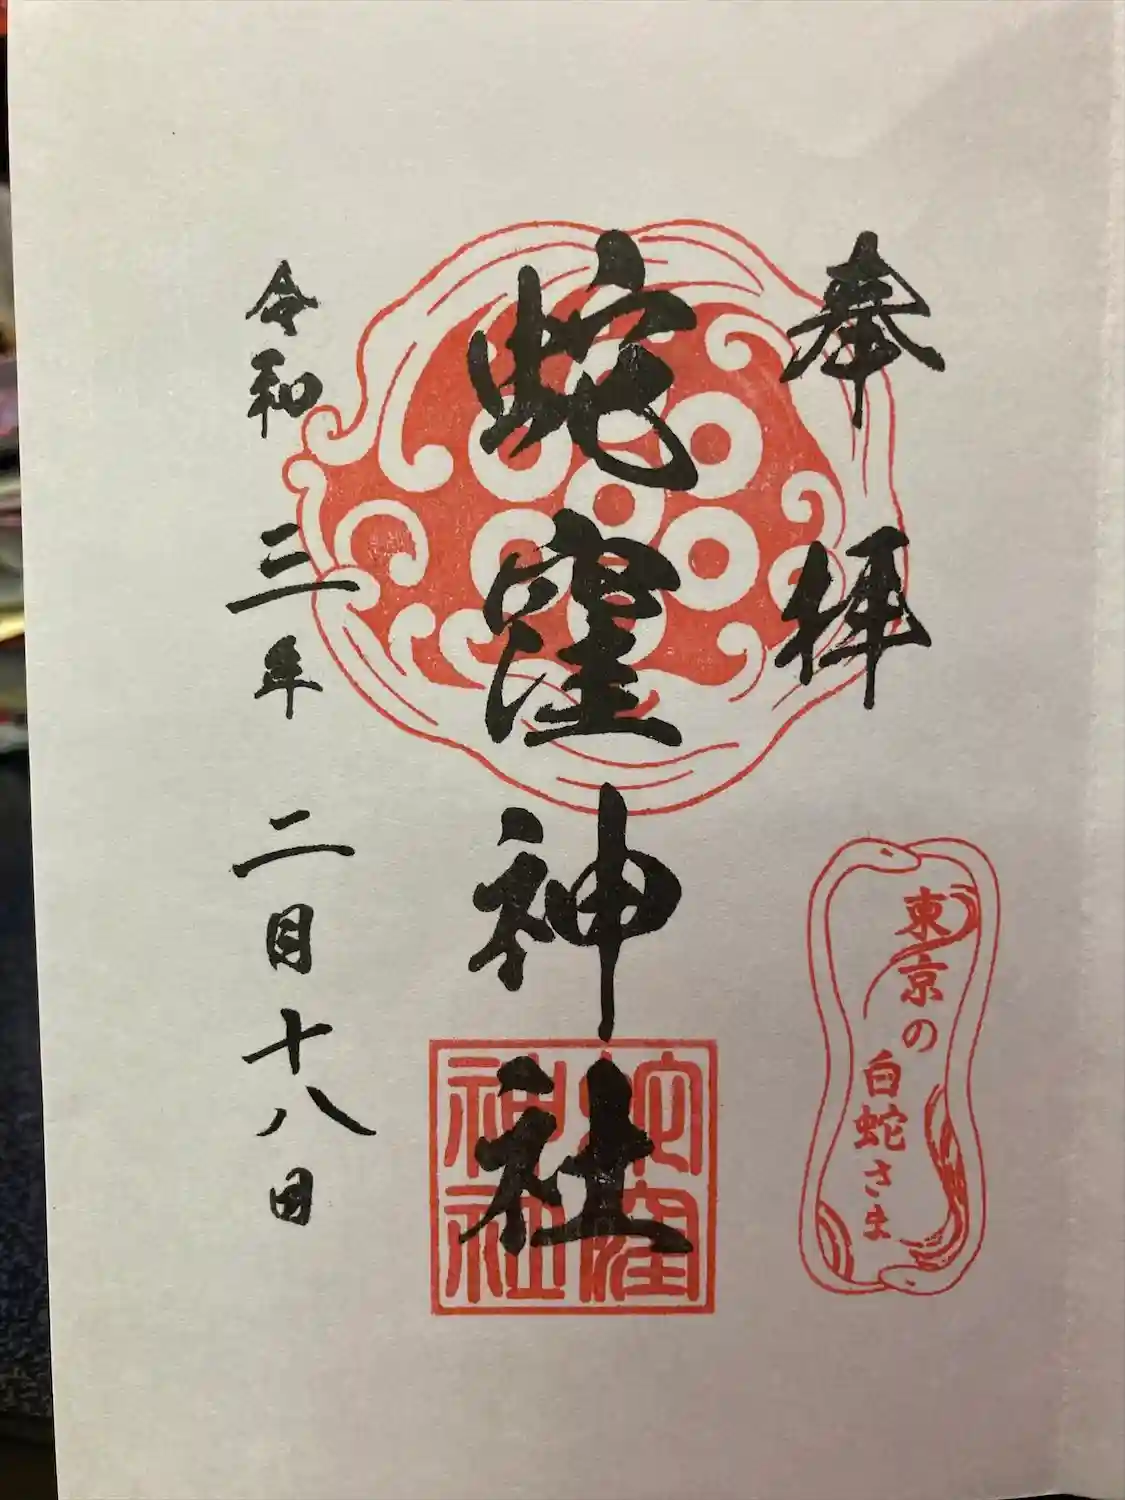 奉拝
東京の
白蛇さま
蛇窪神社
蛇窪
神社
令和三年二月十八日